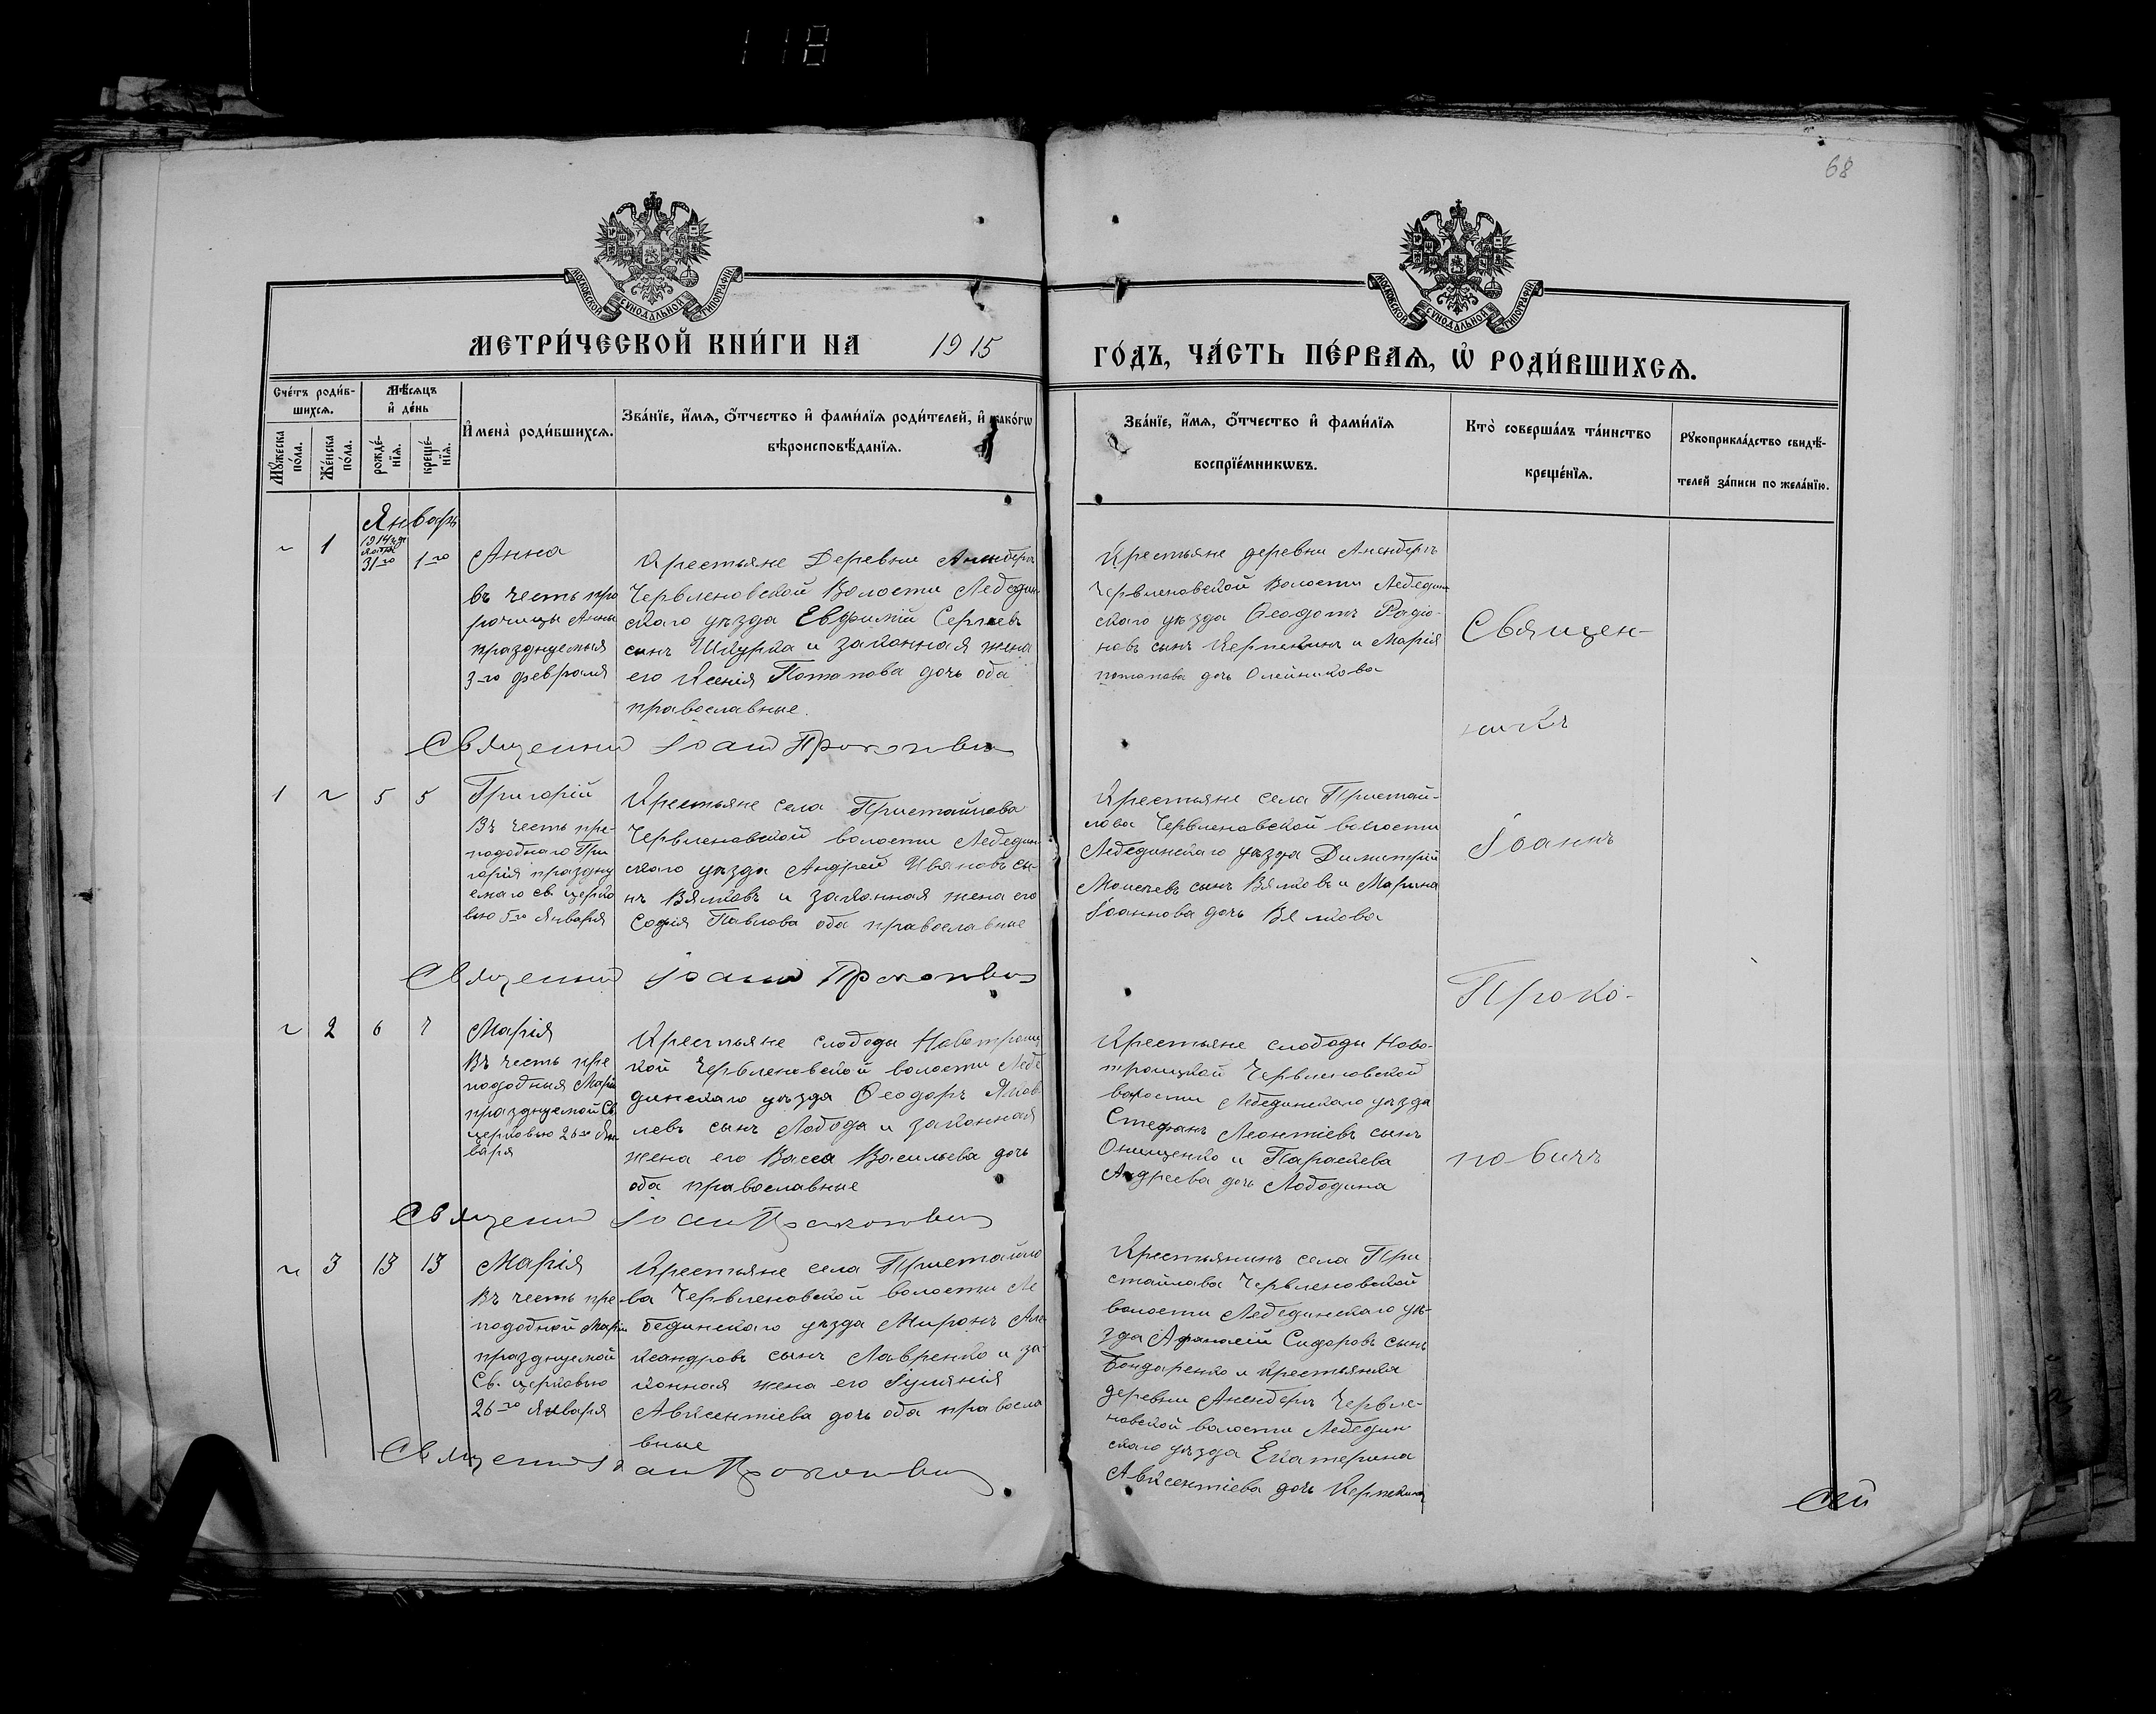 118
68
МОСКОВСКОЙ СѴНОДАЛЬНОЙ ТИПОГРАФІИ
МОСКОВСКОЙ СѴНОДАЛЬНОЙ ТИПОГРАФІИ
МЕТРИ́ЧЕСКОЙ КНИ́ГИ НА 1915
ГО́ДЪ, ЧА́СТЬ ПЕ́РВАѦ, Ѡ҆ РОДИ́ВШИХСѦ.
Сче́тъ роди́в-
шихсѧ.
Мѣ́сѧцъ
и҆ де́нь
Мꙋ́жеска
по́ла.
Же́нска
по́ла.
рожде́-
нїѧ.
креще́-
нїѧ.
И҆мена̀ роди́вшихсѧ.
Зва́нїе, и҆́мѧ, ѻ҆́тчество и҆ фами́лїѧ роди́телей, и҆ како́гѡ
вѣроисповѣ́данїѧ.
Зва́нїе, и҆́мѧ, ѻ҆́тчество и҆ фами́лїѧ
воспрїе́мникѡвъ.
Кто̀ соверша́лъ та́инство
креще́нїѧ.
Рꙋкоприкла́дство свидѣ́-
телей за́писи по жела́нїю.
Январь
~ 1
1914 31го
1го
Анна
въ честь про
рочицы Анны
празднуемыя
3-го февраля
Крестьяне Деревни
Червленовской Волости Лебедин
скаго уѣзда Евфимій Сергѣевъ
сынъ Шкурка и законная жена
его Ксенія Потапова дочь оба
православные.
Крестьяне деревни Аненбергъ
Червленовской Волости Лебедин
скаго уѣзда Ѳеодотъ Радіо-
новъ сынъ и Марія
потапова дочь Олейникова
Священ-
никъ
Іоаннъ
Проко-
повичъ
Священник Іоанн Прокопович
1 ~ 5 5
Григорій
Въ честь пре-
подобнаго Гри
горія праздну
емаго св. церко
вію 5го Января
Крестьяне села Пристайлова
Червленовской волости Лебедин
скаго уѣзда Андрей Ивановъ сы-
нъ Вялковъ и законная жена его
Софія Павлова оба православные
Крестьяне села Пристай-
лова Червленовской волости
Лебединскаго уѣзда Димитрій
Моисеевъ сынъ Вялковъ и Марина
Іоаннова дочь Вялкова
Священник Іоанн Прокопович
~ 2 6 7
Марія
Въ честь пре
подобныя Маріи
празднуемой Св.
церковью 26го Ян
варя
Крестьяне слободы Новотроиц
кой Червленовской волости Лебе
динскаго уѣзда Ѳеодоръ Яков
левъ сынъ Лобода и законная
жена его Васса Васильева дочь
оба православные
Крестьяне слободы Ново-
троицкой Червленовской
волости Лебединскаго уѣзда
Стефанъ Леонтіевъ сынъ
Онищенко и Параскева
Андреева дочь Лободина
Священник Іоанн Прокопович
~ 3 13 13
Марія
Въ честь пре
подобной Маріи
празднуемой
Св. церковью
26го Января
Крестьяне села Пристайло
ва Червленовской волости Ле
бединскаго уѣзда Миронъ Але
ксандровъ сынъ Лавренко и за
конная жена его Іуліанія
Авксентіева дочь оба правосла
вные
Крестьянинъ села При
стайлава Червленовской
волости Лебединскаго уѣ-
зда Афанасій Сидоровъ сынъ
Бондаренко и крестьянка
деревни Аненбергъ Червле-
новской волости Лебедин
скаго уѣзда Екатерина
Авксентіева дочь
Священник Іоанн Прокопович